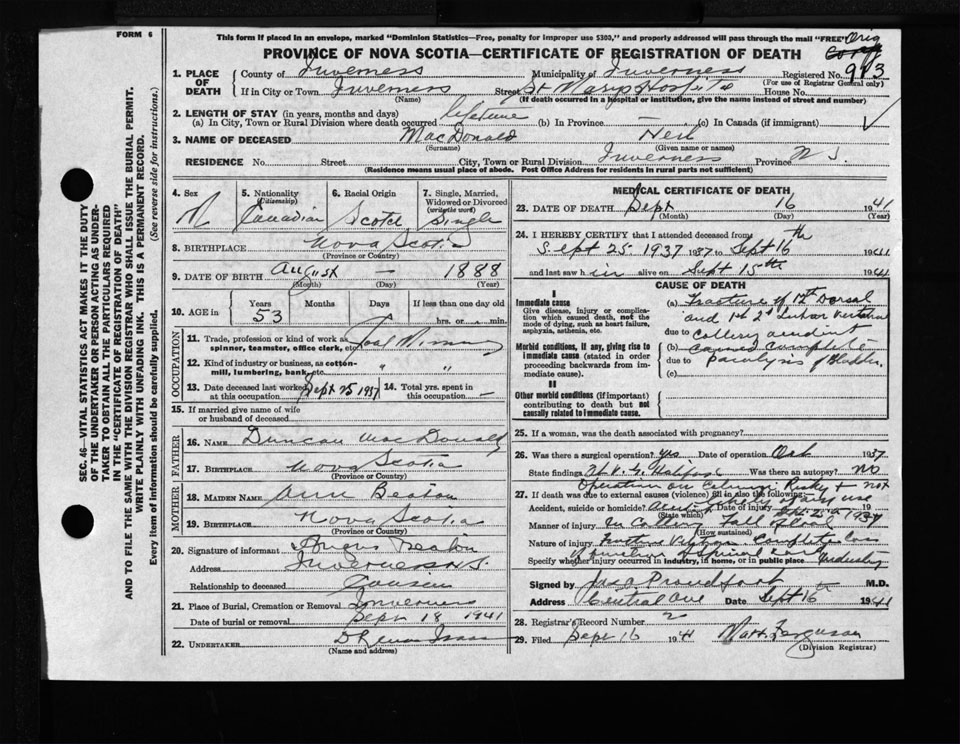 FORM 6
This form if placed in an envelope, marked "Dominion Statistics—Free, penalty for improper use $300," and properly addressed will pass through the mail "FREE" Orig
PROVINCE OF NOVA SCOTIA—CERTIFICATE OF REGISTRATION OF DEATH Copy
1. PLACE OF DEATH County of Inverness Municipality of Inverness Registered No. 913
(For use of Registrar General only)
If in City or Town Inverness Street St Marys Hospital
(Name) (If death occurred in a hospital or institution, give the name instead of street and number)
2. LENGTH OF STAY (in years, months and days)
(a) In City, Town or Rural Division where death occurred lifetime (b) In Province (c) In Canada (if immigrant)
3. NAME OF DECEASED MacDonald Neil
(Surname) (Given name or names)
RESIDENCE No. Street City, Town or Rural Division Inverness Province N S.
(Residence means usual place of abode. Post Office Address for residents in rural parts not sufficient)
4. Sex M
5. Nationality (Citizenship) Canadian
6. Racial Origin Scotch
7. Single, Married, Widowed or Divorced (write the word) Single
8. BIRTHPLACE Nova Scotia
(Province or Country)
9. DATE OF BIRTH August — 1888
(Month) (Day) (Year)
10. AGE in Years Months Days If less than one day old
53 hrs. or min.
OCCUPATION
11. Trade, profession or kind of work as spinner, teamster, office clerk, etc. Coal Mining
12. Kind of industry or business, as cotton-mill, lumbering, bank, etc. " "
13. Date deceased last worked at this occupation Sept 25 1937 14. Total yrs. spent in this occupation —
15. If married give name of wife or husband of deceased
FATHER
16. NAME Duncan MacDonald
17. BIRTHPLACE Nova Scotia
(Province or Country)
MOTHER
18. MAIDEN NAME Ann Beaton
19. BIRTHPLACE Nova Scotia
(Province or Country)
20. Signature of informant Angus Beaton
Address Inverness N S.
Relationship to deceased Cousin
21. Place of Burial, Cremation or Removal Inverness
Date of burial or removal Sept 18 1941
22. UNDERTAKER
(Name and address)
MEDICAL CERTIFICATE OF DEATH
23. DATE OF DEATH Sept 16 1941
(Month) (Day) (Year)
24. I HEREBY CERTIFY that I attended deceased from
Sept 25 1937 1937 to Sept 16th 1941
and last saw h im alive on Sept 15th 1941
CAUSE OF DEATH
I
Immediate cause
Give disease, injury or complication which caused death, not the mode of dying, such as heart failure, asphyxia, asthenia, etc.
(a) Fracture of 12th Dorsal
and 1st 2d Lumbar vertebrae
due to Colliery accident
Morbid conditions, if any, giving rise to immediate cause (stated in order proceeding backwards from immediate cause).
(b) caused complete
due to paralysis of bladder
(c)
II
Other morbid conditions (if important) contributing to death but not causally related to immediate cause.
25. If a woman, was the death associated with pregnancy?
26. Was there a surgical operation? Yes Date of operation Oct 1937
State findings Halifax Was there an autopsy? No
Operation on
27. If death was due to external causes (violence) fill in also the following:—
Accident, suicide or homicide? Date of injury Sept 25 1937
(State which)
Manner of injury In Colliery Fall of
(How sustained)
Nature of injury Complete
Specify whether injury occurred in industry, in home, or in public place Industry
Signed by Jas. A. Proudfoot M.D.
Address Central Ave Date Sept 16 1941
28. Registrar's Record Number 2
29. Filed Sept 16 1941 Matt Ferguson
(Division Registrar)
SEC. 46—VITAL STATISTICS ACT MAKES IT THE DUTY
OF THE UNDERTAKER OR PERSON ACTING AS UNDER-
TAKER TO OBTAIN ALL THE PARTICULARS REQUIRED
IN THE "CERTIFICATE OF REGISTRATION OF DEATH"
AND TO FILE THE SAME WITH THE DIVISION REGISTRAR WHO SHALL ISSUE THE BURIAL PERMIT.
WRITE PLAINLY WITH UNFADING INK. THIS IS A PERMANENT RECORD.
Every item of information should be carefully supplied. (See reverse side for instructions.)